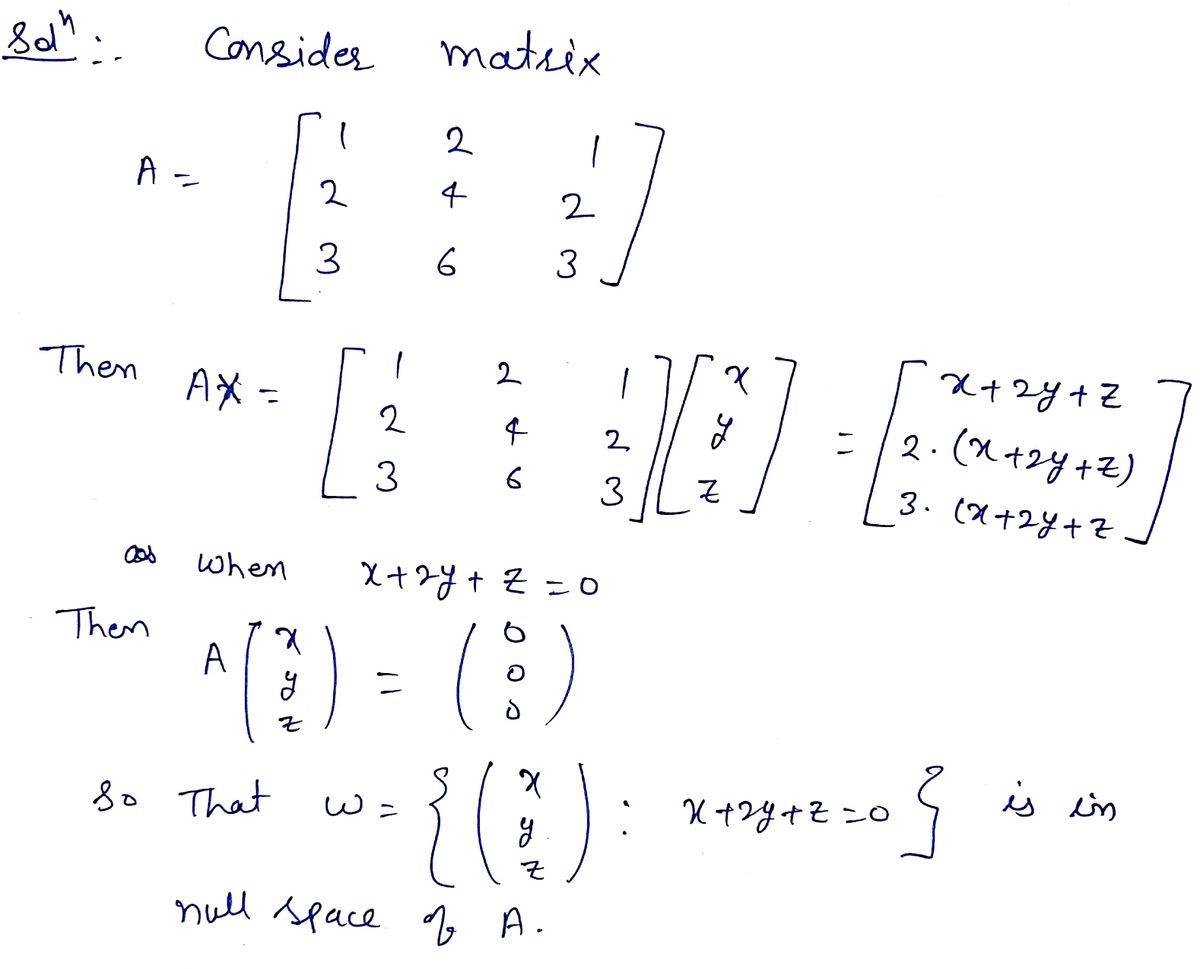 Solⁿ :- Consider matrix
A = [ 1 2 1
2 4 2
3 6 3 ]
Then AX = [ 1 2 1
2 4 2
3 6 3 ] [ x
y
z ] = [ x+2y+z
2·(x+2y+z)
3·(x+2y+z ]
as when x+2y+z=0
Then A ( x
y
z ) = ( 0
0
0 )
So That W = { ( x
y
z ) : x+2y+z=0 } is in
null space of A.